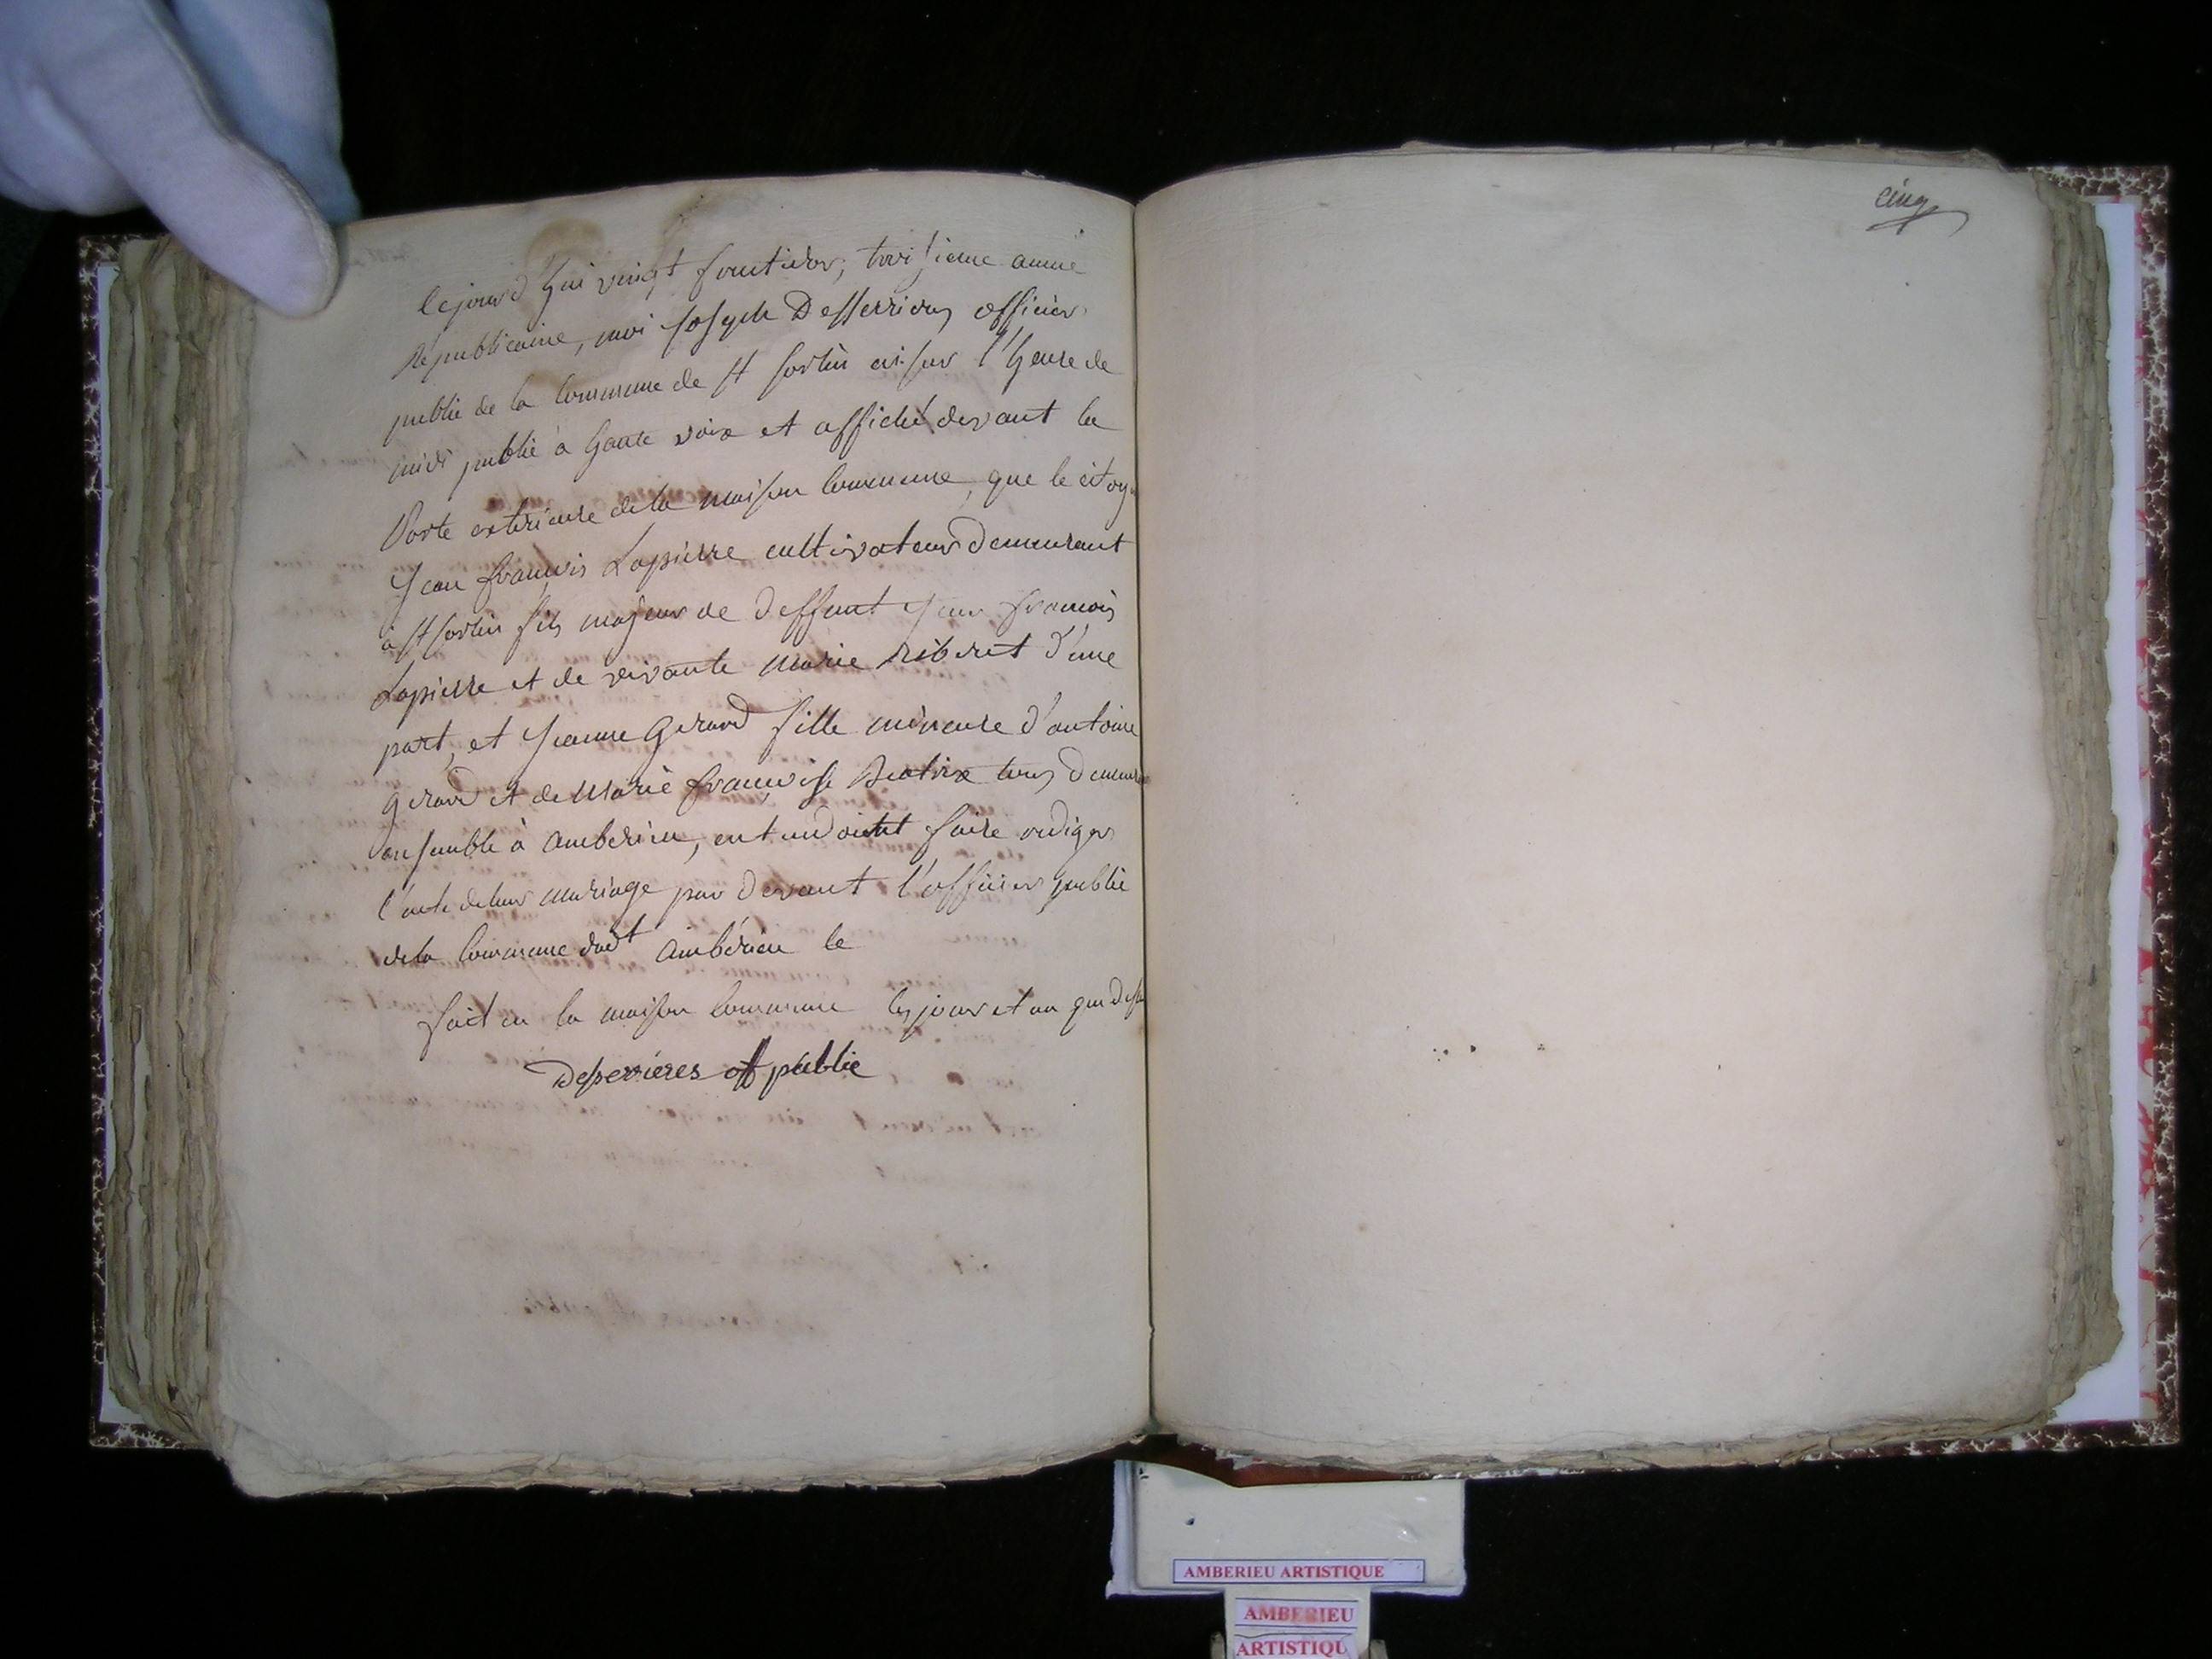 Cejourd'hui vingt fructidor, troisieme année
Républicaine, moi Joseph Desserrieres officier
public de la Commune de St Sorlin ai sur l'heure de
midi publié à haute voix et affiché devant la
Porte exterieure de la maison Commune, que le citoy
Jean françois Lapierre cultivateur demeurant
à St sorlin fils majeur de deffunt Jean francois
Lapierre et de vivante Marie Ribiret d'une
part, et Jeanne Gerard fille mineure d'antoine
gerard et de Marie françoise Beatrix tous demeur
ensemble à Amberieu, entendoient faire rediger
l'acte de leur mariage par devant l'officier public
de la Commune dudt Ambérieu le
fait en la maison Commune les jour et an que dessu
Desserrieres off public
cinq
AMBERIEU ARTISTIQUE
AMBERIEU
ARTISTIQU